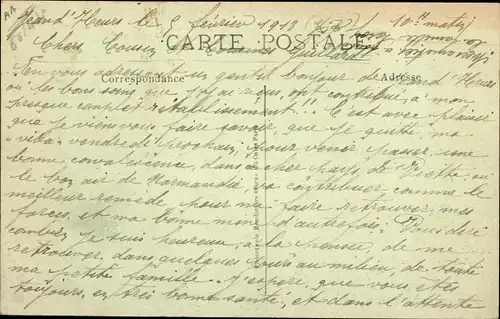 Jeand'Heurs le 5 février 1918 10h matin
CARTE POSTALE
Chers Cousins
Correspondance Adresse
En vous adressant un gentil bonjour de Jeand'Heurs
où les bons soins que j'ai reçus, ont contribué à mon
presque complet rétablissement!! C'est avec plaisir
que je viens vous faire savoir que je quitte ma
"villa" vendredi prochain, pour venir passer une
bonne convalescence, dans ce cher pays, de où
le bon air de Normandie, va contribuer, comme le
meilleur remède pour me faire retrouver, mes
forces, et ma bonne mine d'autrefois! Vous dire
combien je suis heureux, à la pensée, de me
retrouver, dans quelques jours au milieu, de toute
ma petite famille. J'espère, que vous êtes
toujours, en très bonne santé, et dans l'attente